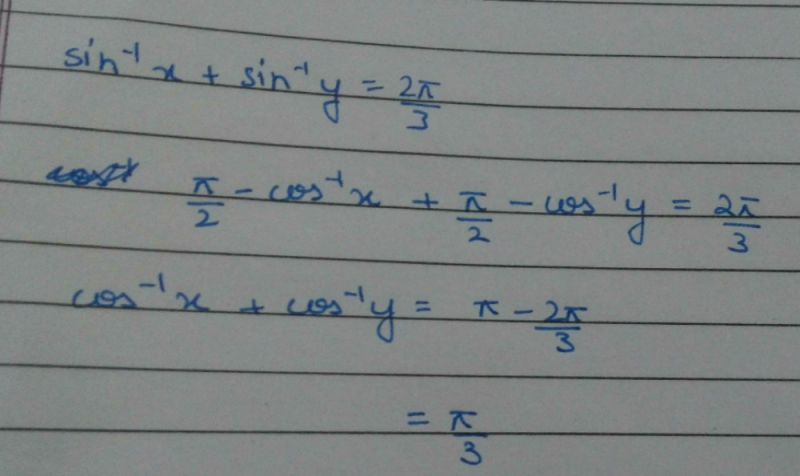 sin⁻¹x + sin⁻¹y = 2π/3
π/2 - cos⁻¹x + π/2 - cos⁻¹y = 2π/3
cos⁻¹x + cos⁻¹y = π - 2π/3
= π/3